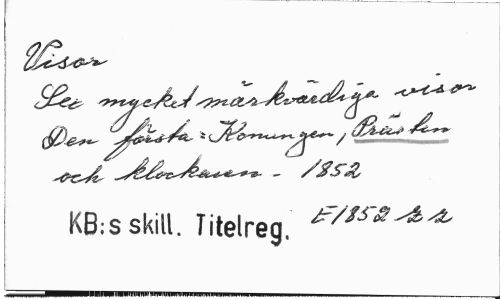 Visor
Sex mycket märkvärdiga visor
Den första: Konungen, Prästen
och klockaren - 1852
KB:s skill. Titelreg. E1852 g z